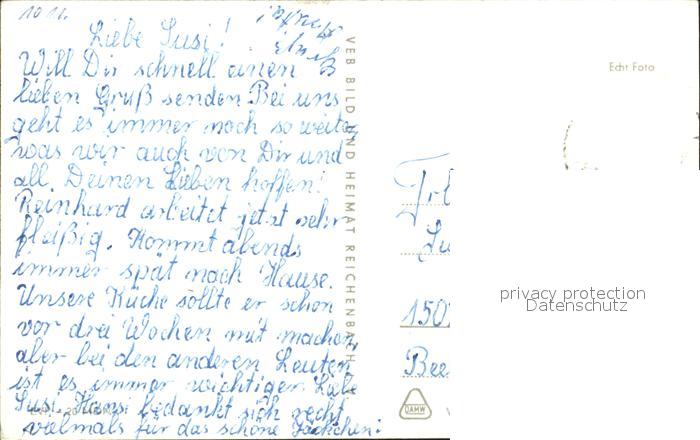 10 11.
Liebe Susi!
Will Dir schnell einen
lieben Gruß senden. Bei uns
geht es immer noch so weiter,
was wir auch von Dir und
all Deinen Lieben hoffen!
Reinhard arbeitet jetzt sehr
fleißig. Kommt abends
immer spät nach Hause.
Unsere Küche sollte er schon
vor drei Wochen mit machen,
aber bei den anderen Leuten
ist es immer wichtiger. Liebe
Susi, Hansi bedankt sich recht
vielmals für das schöne Jäckchen!
VEB BILD UND HEIMAT REICHENBACH
Echt Foto
150
Bee
privacy protection
Datenschutz
DAMW